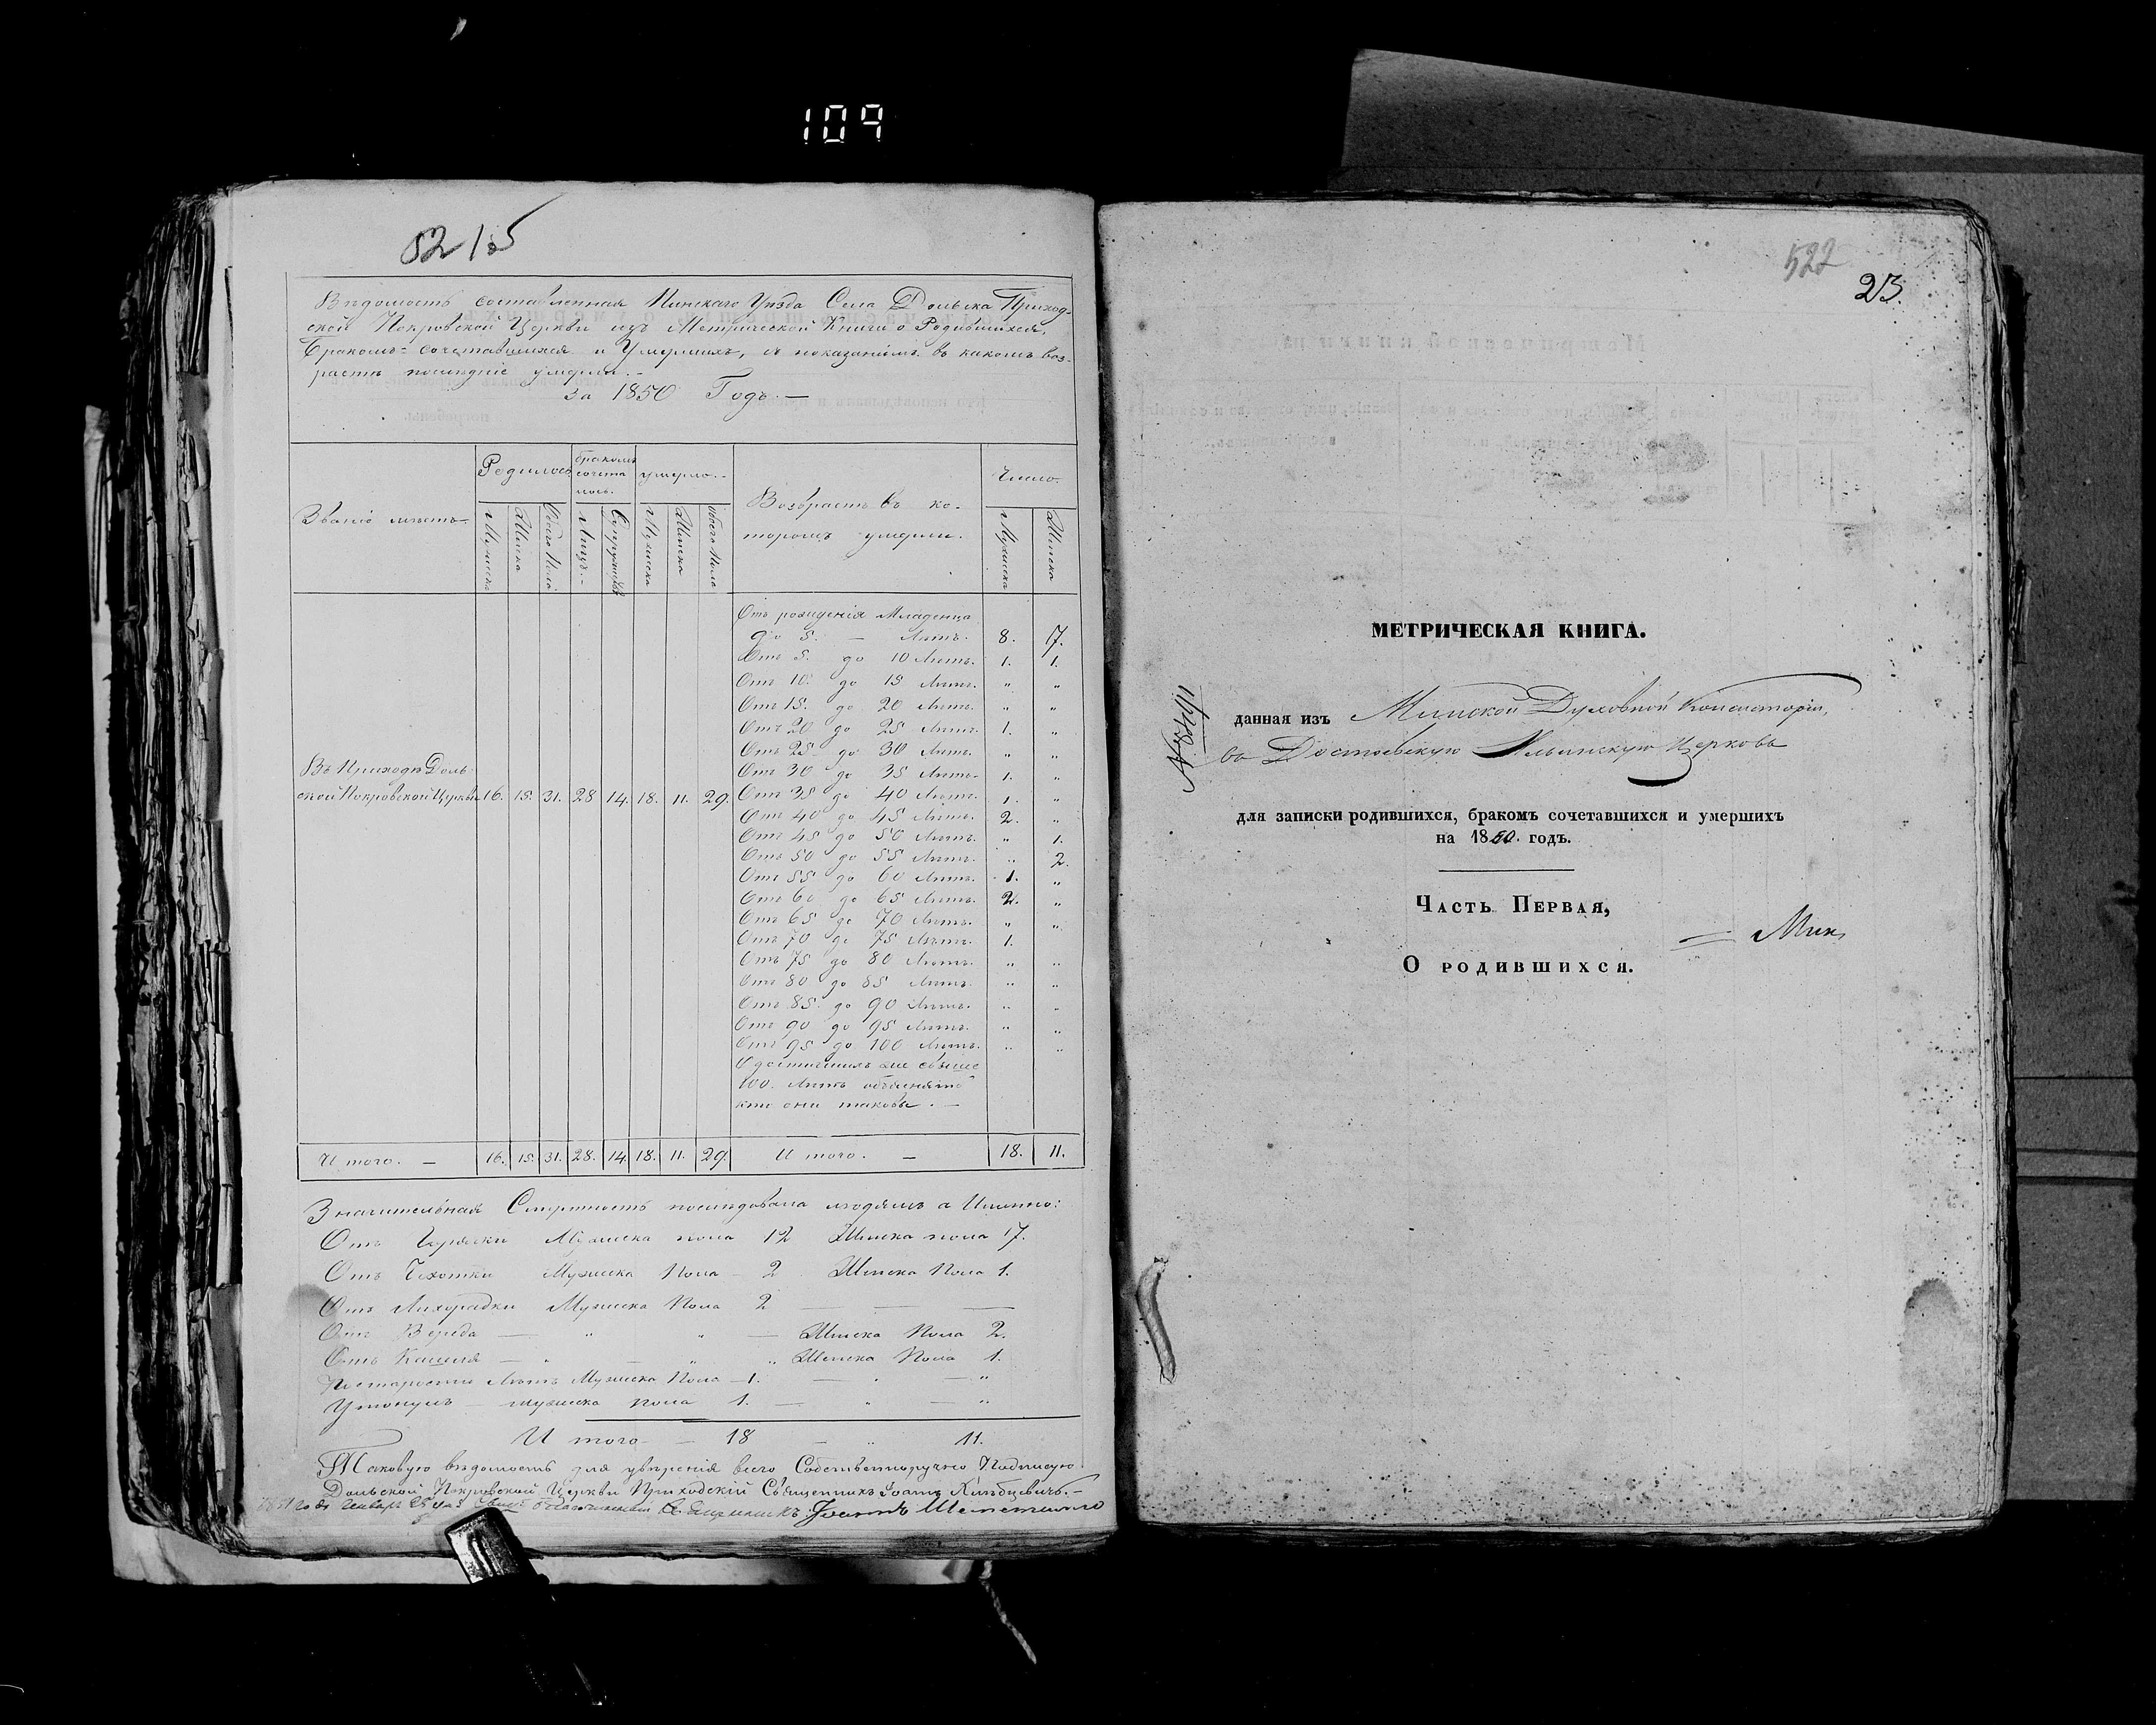 109
521 об
Вѣдомость составленная Пинскаго Уѣзда Села Дольска Приход-
ской Покровской Церкви изъ Метрической Книги о Родившихся,
Бракомъ-сочетавшихся и Умершихъ, съ показаніемъ въ какомъ воз-
растѣ послѣдніе умерли.-
За 1850 Годъ.—
Званіе мѣстъ
Родилось
бракомъ сочета лось.
умерло.-
Возврастъ въ ко-
торомъ умерли.
Число.
Мужеска
Женска
Обоего Пола
Лицъ.-
Супружествъ
Мужеска
Женска
обоего Пола
Мужеска
Женска
Отъ рожденія Младенца
до 5. — Лѣтъ. 8. 7.
Отъ 5. до 10 Лѣтъ. 1. 1.
Отъ 10. до 15 Лѣтъ. " "
Отъ 15. до 20 Лѣтъ. " "
Отъ 20 до 25 Лѣтъ. 1. "
Отъ 25 до 30 Лѣтъ. " "
Отъ 30 до 35 Лѣтъ. 1. "
Въ Приходѣ Доль-
ской Покровской Церкви 16. 15. 31. 28 14. 18. 11. 29.
Отъ 35 до 40 Лѣтъ. 1. "
Отъ 40 до 45 Лѣтъ. 2. "
Отъ 45 до 50 Лѣтъ. " 1.
Отъ 50 до 55 Лѣтъ. " 2.
Отъ 55 до 60 Лѣтъ. 1. "
Отъ 60 до 65 Лѣтъ. 2. "
Отъ 65 до 70 Лѣтъ. " "
Отъ 70 до 75 Лѣтъ. 1.
Отъ 75 до 80 Лѣтъ. " "
Отъ 80 до 85 Лѣтъ. " "
Отъ 85. до 90 Лѣтъ. " "
Отъ 90 до 95 Лѣтъ. " "
Отъ 95 до 100 Лѣтъ. " "
О достигшихъ же свыше
100. Лѣтъ объяснять
кто они таковы. —
И того. — 16. 15. 31. 28. 14. 18. 11. 29. И того. — 18. 11.
Значительная Смертность послѣдовала людямъ а Именно:
Отъ Горячки Мужеска пола 12 Женска пола 7.
Отъ Чахотки Мужеска Пола — 2 Женска Пола 1.
Отъ Лихорадки Мужеска Пола 2 — — —
Отъ Вереда — " " — Женска Пола 2.
Отъ Кашля — " — " " Женска Пола 1.
По старости Лѣтъ Мужеска Пола — 1. — " — "
Утонулъ — мужеска пола 1. — " — "
И того — — 18 — " 11.
Таковую вѣдомость для увѣренія всего Собственноручно Подписую
Дольской Покровской Церкви Приходскій Священникъ Іоаннъ
1851 года Генваря 25 дня Іоаннъ
522
23.
МЕТРИЧЕСКАЯ КНИГА.
данная изъ Минской Духовной Консисторіи,
въ Достоевскую Ильинскую Церковь
для записки родившихся, бракомъ сочетавшихся и умершихъ
на 1850. годъ.
Часть Первая,
Мин
О родившихся.